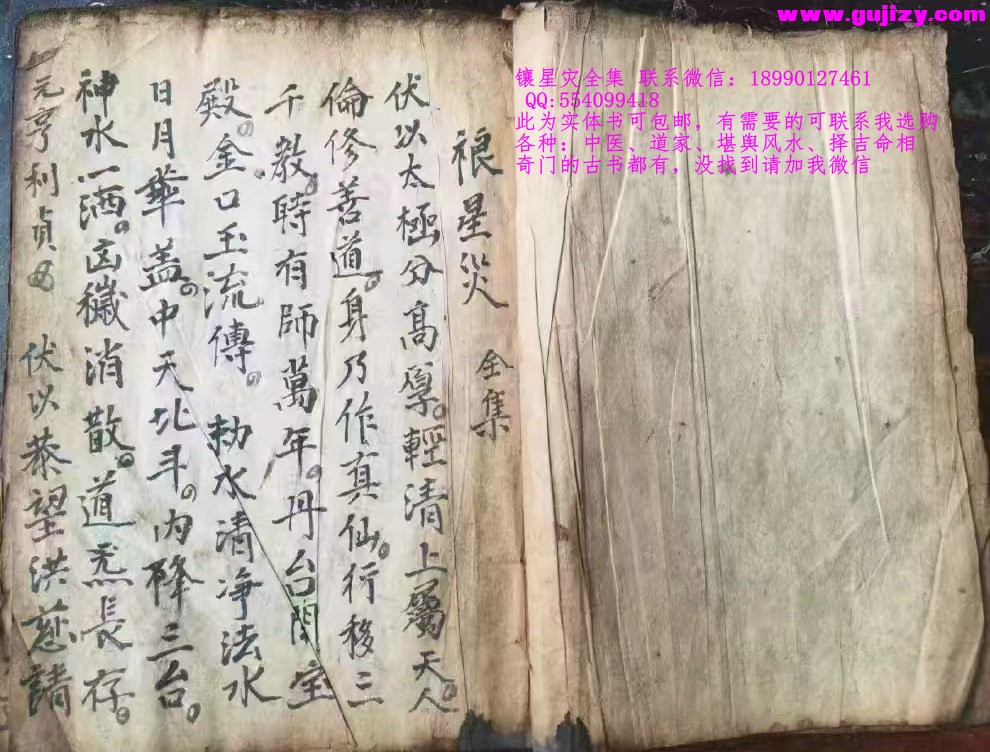 www.gujizy.com
镶星灾全集 联系微信：18990127461
QQ:554099418
此为实体书可包邮，有需要的可联系我选购
各种：中医、道家、堪舆风水、择吉命相
奇门的古书都有，没找到请加我微信
星災 全集
伏以太極分高厚。輕清上屬天。人
倫修善道。身乃作真仙。行移三
千教。時有師萬年。丹台開宝
殿。金口玉流傳。 勅水清净法水
日月華盖。中天北斗。内降三台。
神水一洒。凶穢消散。道炁長存。
元亨利貞 伏以恭望洪慈請